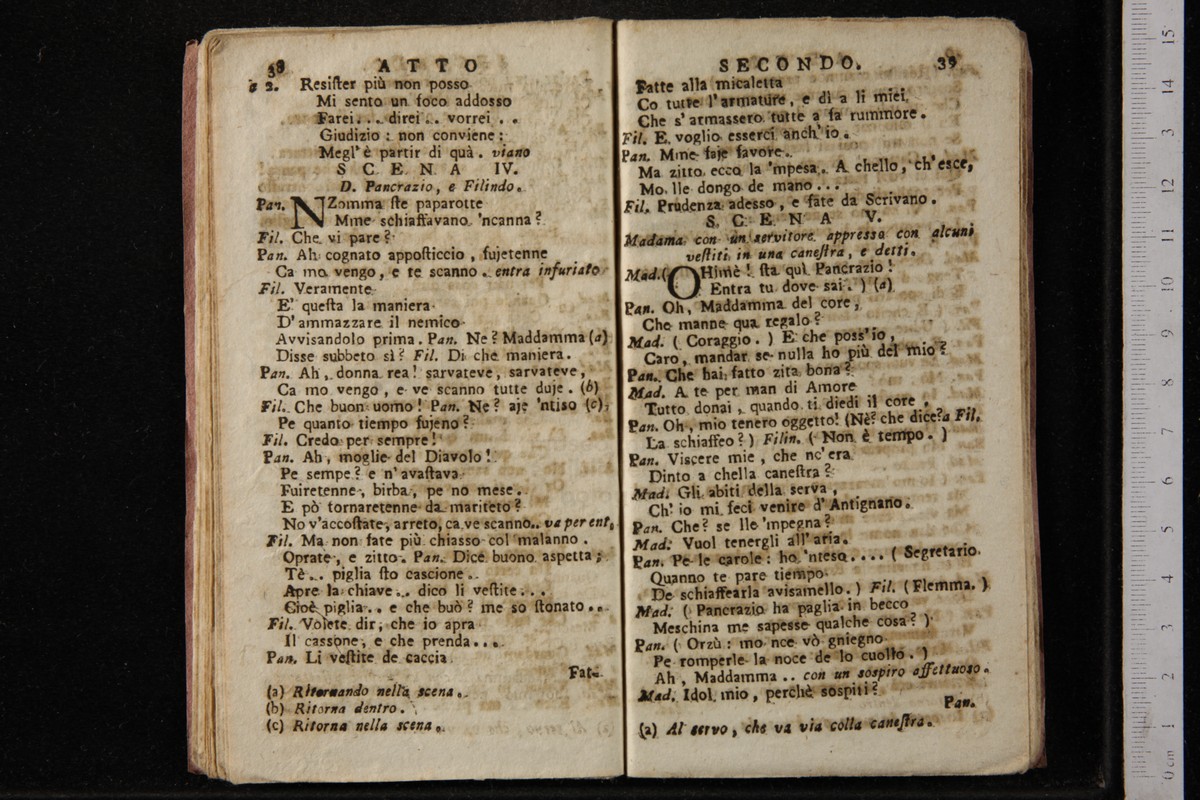 38 ATTO
a 2. Resiſter più non posso
Mi sento un foco addosso
Farei... direi.. vorrei..
Giudizio: non conviene:
Megl'è partir di quà. viano
SCENA IV.
D. Pancrazio, e Filindo.
Pan. NZomma ſte paparotte
Mme schiaffavano 'ncanna?
Fil. Che vi pare?
Pan. Ah cognato appoſticcio, fujetenne
Ca mo vengo, e te scanno. entra infuriato
Fil. Veramente
E' queſta la maniera
D'ammazzare il nemico
Avvisandolo prima. Pan. Ne? Maddamma (a)
Disse subbeto sì? Fil. Di che maniera.
Pan. Ah, donna rea! sarvateve, sarvateve,
Ca mo vengo, e ve scanno tutte duje. (b)
Fil. Che buon uomo! Pan. Ne? aje 'ntiso (c),
Pe quanto tiempo fujeno?
Fil. Credo per sempre!
Pan. Ah, moglie del Diavolo!
Pe sempe? e n'avaſtava
Fuiretenne, birba, pe no mese.
E pò tornaretenne da mariteto?
No v'accoſtate, arreto, ca ve scanno.. va per ent.
Fil. Ma non fate più chiasso col malanno.
Oprate, e zitto. Pan. Dice buono aspetta;
Tè.. piglia ſto cascione..
Apre la chiave.. dico li veſtite...
Cioè piglia.. e che buò? me so ſtonato..
Fil. Volete dir, che io apra
Il cassone, e che prenda...
Pan. Li veſtite de caccia
Fat-
(a) Ritornando nella scena.
(b) Ritorna dentro.
(c) Ritorna nella scena.
SECONDO. 39
Fatte alla micaletta
Co tutte l'armature, e dì a li miei,
Che s'armassero tutte a fa rummore.
Fil. E voglio esserci anch'io.
Pan. Mme faje favore..
Ma zitto, ecco la 'mpesa.. A chello, ch'esce,
Mo lle dongo de mano...
Fil. Prudenza adesso, e fate da Scrivano.
SCENA V.
Madama con un servitore appresso con alcuni
veſtiti in una caneſtra, e detti.
Mad. (OHimè! ſta quì Pancrazio!
Entra tu dove sai.) (a)
Pan. Oh, Maddamma del core,
Che manne qua regalo?
Mad. (Coraggio.) E che poss'io,
Caro, mandar se nulla ho più del mio?
Pan. Che hai fatto zita bona?
Mad. A te per man di Amore
Tutto donai, quando ti diedi il core.
Pan. Oh, mio tenero oggetto! (Nè? che dice? a Fil.
La schiaffeo?) Filin. (Non è tempo.)
Pan. Viscere mie, che nc'era
Dinto a chella caneſtra?
Mad. Gli abiti della serva,
Ch'io mi feci venire d'Antignano.
Pan. Che? se lle 'mpegna?
Mad. Vuol tenergli all'aria.
Pan. Pe le carole: ho 'nteso.... (Segretario.
Quanno te pare tiempo
De schiaffearla avisamello.) Fil. (Flemma.)
Mad. (Pancrazio ha paglia in becco
Meschina me sapesse qualche cosa?)
Pan. (Orzù: mo nce vò gniegno
Pe romperle la noce de lo cuollo.)
Ah, Maddamma.. con un sospiro affettuoso.
Mad. Idol mio, perchè sospiti?
Pan.
(a) Al servo, che va via colla caneſtra.
0 cm 1 2 3 4 5 6 7 8 9 10 11 12 13 14 15